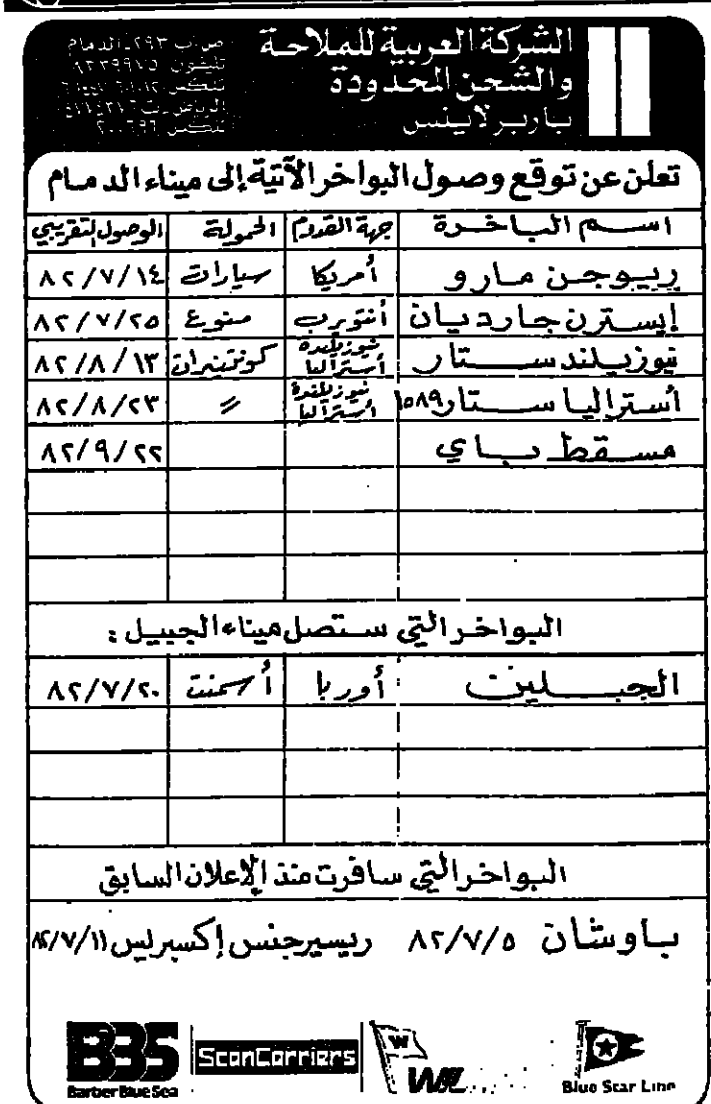 الشركة العربية للملاحة
والشحن المحدودة
باربر لاينس
ص.ب ٢٩٣ الدمام
تليفون ٨٣٣٩٩١٥
تعلن عن توقع وصول البواخر الآتية إلى ميناء الدمام
اسم الباخرة جهة القدوم الحمولة الوصول التقريبي
ريوجن مارو أمريكا سيارات ٨٢/٧/١٤
إيسترن جارديان أنتويرب منوع ٨٢/٧/٢٥
نيوزيلند ستار نيوزيلندة أستراليا كونتينران ٨٢/٨/١٣
أستراليا ستار ١٥٨٩ نيوزيلندة أستراليا 〃 ٨٢/٨/٢٣
مسقط باي ٨٢/٩/٢٢
البواخر التي ستصل ميناء الجبيل :
الجبلين أوربا أسمنت ٨٢/٧/٢٠
البواخر التي سافرت منذ الإعلان السابق
باوشان ٨٢/٧/٥ ريسيرجنس إكسبرلس ٨٢/٧/١١
BBS
Barber Blue Sea
ScanCarriers
W
WL
Blue Star Line